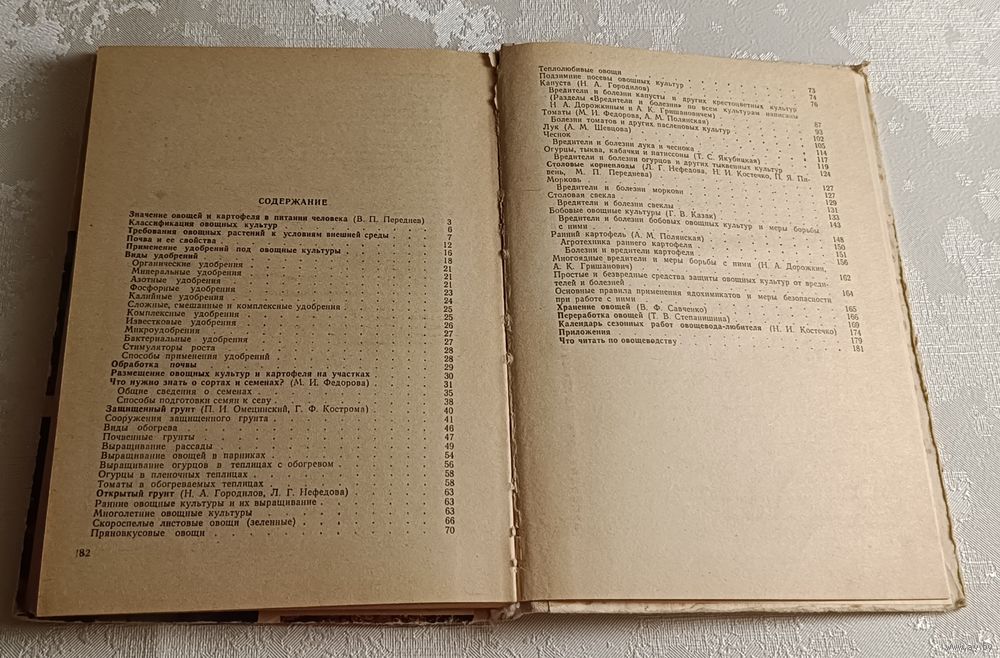 СОДЕРЖАНИЕ
Значение овощей и картофеля в питании человека (В. П. Переднев) 3
Классификация овощных культур 6
Требования овощных растений к условиям внешней среды 7
Почва и ее свойства 12
Применение удобрений под овощные культуры 16
Виды удобрений 18
Органические удобрения 21
Минеральные удобрения 21
Азотные удобрения 21
Фосфорные удобрения 23
Калийные удобрения 24
Сложные, смешанные и комплексные удобрения 25
Комплексные удобрения 25
Известковые удобрения 26
Микроудобрения 27
Бактериальные удобрения 27
Стимуляторы роста 28
Способы применения удобрений 28
Обработка почвы 29
Размещение овощных культур и картофеля на участках 30
Что нужно знать о сортах и семенах? (М. И. Федорова) 31
Общие сведения о семенах 35
Способы подготовки семян к севу 38
Защищенный грунт (П. И. Омещинский, Г. Ф. Кострома) 40
Сооружения защищенного грунта 41
Виды обогрева 46
Почвенные грунты 47
Выращивание рассады 49
Выращивание овощей в парниках 54
Выращивание огурцов в теплицах с обогревом 56
Огурцы в пленочных теплицах 58
Томаты в обогреваемых теплицах 58
Открытый грунт (Н. А. Городилов, Л. Г. Нефедова) 63
Ранние овощные культуры и их выращивание 63
Многолетние овощные культуры 63
Скороспелые листовые овощи (зеленные) 66
Пряновкусовые овощи 70
182
Теплолюбивые овощи 73
Подзимние посевы овощных культур 74
Капуста (Н. А. Городилов) 76
Вредители и болезни капусты и других крестоцветных культур
(Разделы «Вредители и болезни» по всем культурам написаны
Н. А. Дорожкиным и А. К. Гришановичем) 87
Томаты (М. И. Федорова, А. М. Полянская) 93
Болезни томатов и других пасленовых культур 102
Лук (А. М. Шевцова) 105
Чеснок 114
Вредители и болезни лука и чеснока 117
Огурцы, тыква, кабачки и патиссоны (Т. С. Якубицкая) 119
Вредители и болезни огурцов и других тыквенных культур 124
Столовые корнеплоды (Л. Г. Нефедова, Н. И. Костечко, П. Я. Пи-
вень, М. П. Переднева) 127
Морковь 127
Вредители и болезни моркови 129
Столовая свекла 131
Вредители и болезни свеклы 133
Бобовые овощные культуры (Г. В. Казак) 143
Вредители и болезни бобовых овощных культур и меры борьбы
с ними 148
Ранний картофель (А. М. Полянская) 150
Агротехника раннего картофеля 151
Болезни и вредители картофеля 156
Многоядные вредители и меры борьбы с ними (Н. А. Дорожкин,
А. К. Гришанович) 162
Простые и безвредные средства защиты овощных культур от вреди-
телей и болезней 164
Основные правила применения ядохимикатов и меры безопасности
при работе с ними 165
Хранение овощей (В. Ф. Савченко) 166
Переработка овощей (Т. В. Степанишина) 169
Календарь сезонных работ овощевода-любителя (Н. И. Костечко) 174
Приложения 179
Что читать по овощеводству 181